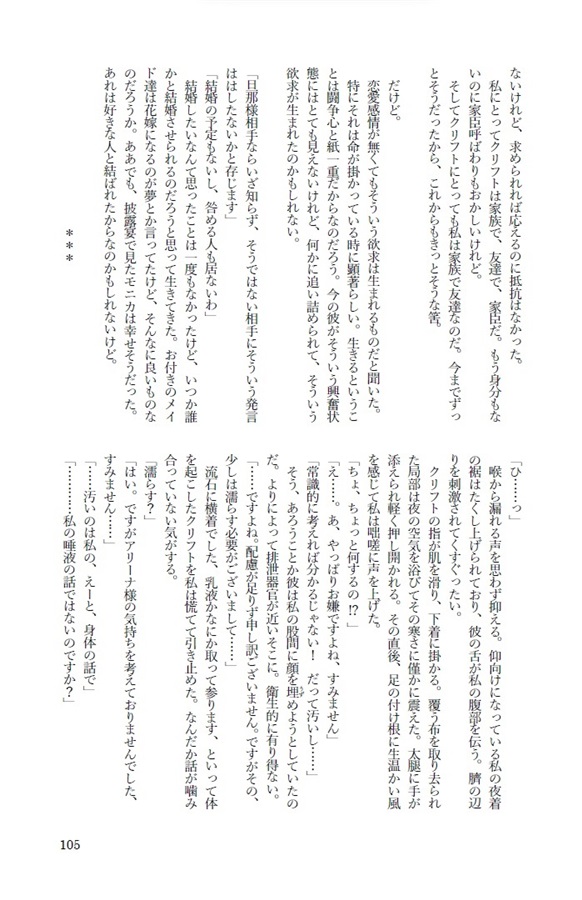 ないけれど、求められれば応えるのに抵抗はなかった。
私にとってクリフトは家族で、友達で、家臣だ。もう身分もな
いのに家臣呼ばわりもおかしいけれど。
そしてクリフトにとっても私は家族で友達なのだ。今までずっ
とそうだったから、これからもきっとそうな筈。
だけど。
恋愛感情が無くてもそういう欲求は生まれるものだと聞いた。
特にそれは命が掛かっている時に顕著らしい。生きるというこ
とは闘争心と紙一重だからなのだろう。今の彼がそういう興奮状
態にはとても見えないけれど、何かに追い詰められて、そういう
欲求が生まれたのかもしれない。
「旦那様相手ならいざ知らず、そうではない相手にそういう発言
ははしたないかと存じます」
「結婚の予定もないし、咎める人も居ないわ」
結婚したいなんて思ったことは一度もなかったけど、いつか誰
かと結婚させられるのだろうと思って生きてきた。お付きのメイ
ド達は花嫁になるのが夢とか言ってたけど、そんなに良いものな
のだろうか。ああでも、披露宴で見たモニカは幸せそうだった。
あれは好きな人と結ばれたからなのかもしれないけど。
＊＊＊
「ひ……っ」
喉から漏れる声を思わず抑える。仰向けになっている私の夜着
の裾はたくし上げられており、彼の舌が私の腹部を伝う。臍の辺
りを刺激されてくすぐったい。
クリフトの指が肌を滑り、下着に掛かる。覆う布を取り去られ
た局部は夜の空気を浴びてその寒さに僅かに震えた。太腿に手が
添えられ軽く押し開かれる。その直後、足の付け根に生温かい風
を感じて私は咄嗟に声を上げた。
「ちょ、ちょっと何するの!?」
「え……。あ、やっぱりお嫌ですよね、すみません」
「常識的に考えれば分かるじゃない！　だって汚いし……」
そう、あろうことか彼は私の股間に顔を埋めようとしていたの
だ。よりによって排泄器官が近いそこに。衛生的に有り得ない。
「……ですよね。配慮が足りず申し訳ございません。ですがその、
少しは濡らす必要がございまして……」
流石に横着でした、乳液かなにか取って参ります、といって体
を起こしたクリフトを私は慌てて引き止めた。なんだか話が噛み
合っていない気がする。
「濡らす？」
「はい。ですがアリーナ様の気持ちを考えておりませんでした、
すみません……」
「……汚いのは私の、えーと、身体の話で」
「…………私の唾液の話ではないのですか？」
105